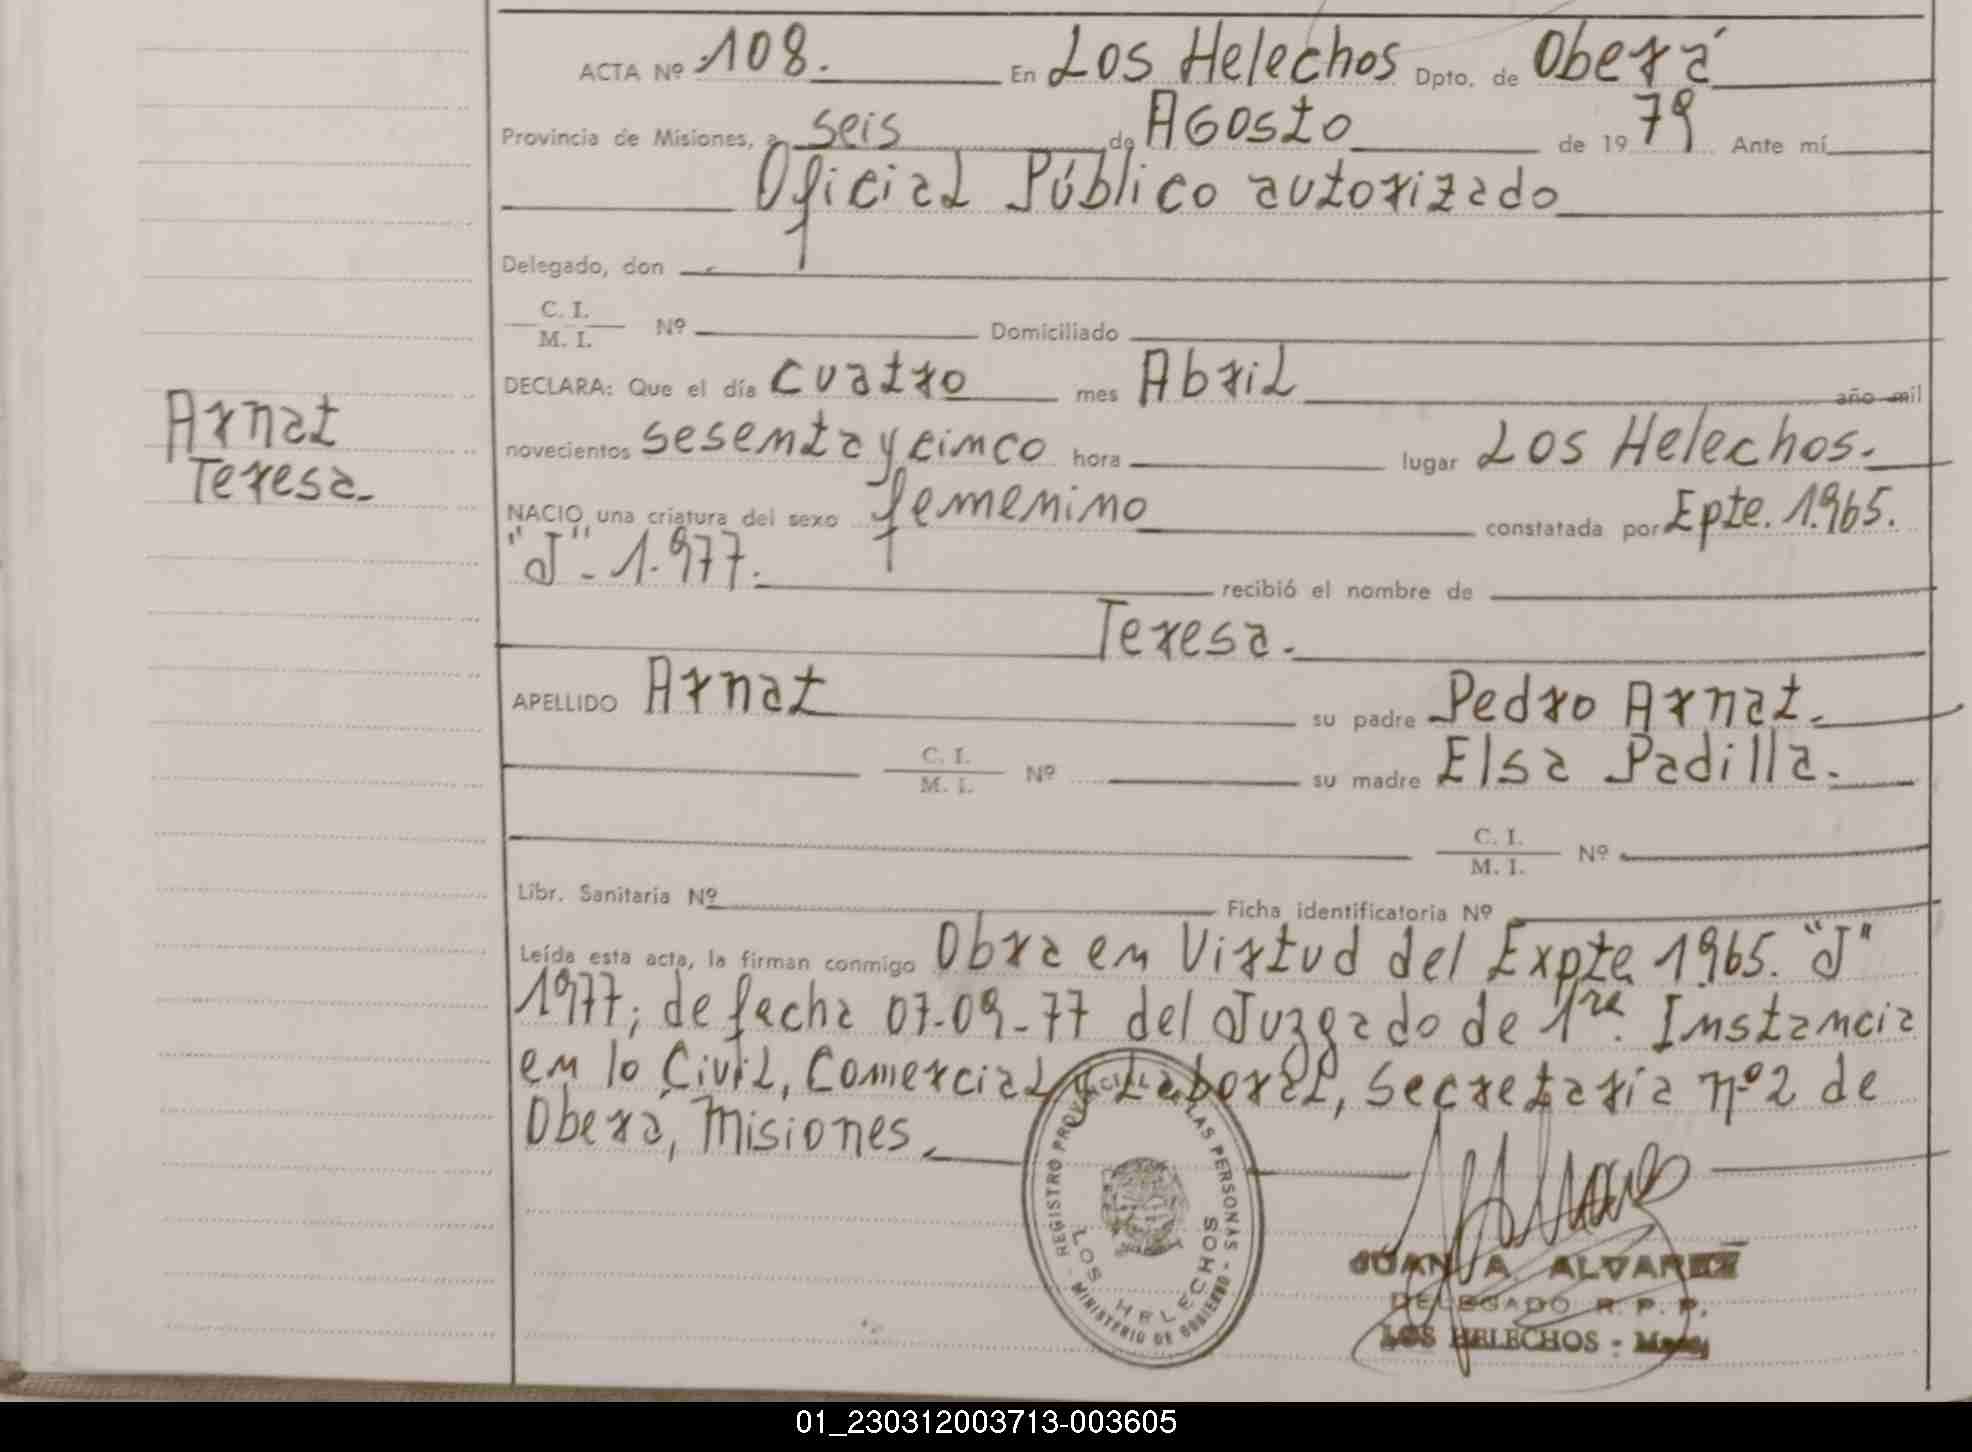 ACTA Nº 108. En Los Helechos Dpto. de Oberá
Provincia de Misiones, a seis de Agosto de 1979 Ante mí
Oficial Público autorizado
Delegado, don
C. I.
M. I. Nº Domiciliado
DECLARA: Que el día cuatro mes Abril año mil
Arnat
novecientos sesenta y cinco hora lugar Los Helechos.
Teresa
NACIO una criatura del sexo femenino constatada por Epte. 1.965.
"J" - 1.977. recibió el nombre de
Teresa.
APELLIDO Arnat su padre Pedro Arnat.
C. I.
M. I. Nº su madre Elsa Padilla.
C. I.
M. I. Nº
Libr. Sanitaria Nº Ficha identificatoria Nº
Leída esta acta, la firman conmigo Obra en Virtud del Expte 1.965. "J"
1977; de fecha 07-09-77 del Juzgado de 1ra. Instancia
en lo Civil, Comercial y Laboral, Secretaria nº 2 de
Oberá, Misiones.
REGISTRO PROVINCIAL DE LAS PERSONAS
LOS HELECHOS
MINISTERIO DE GOBIERNO
JUAN A. ALVAREZ
DELEGADO R. P. P.
LOS HELECHOS -
01_230312003713-003605